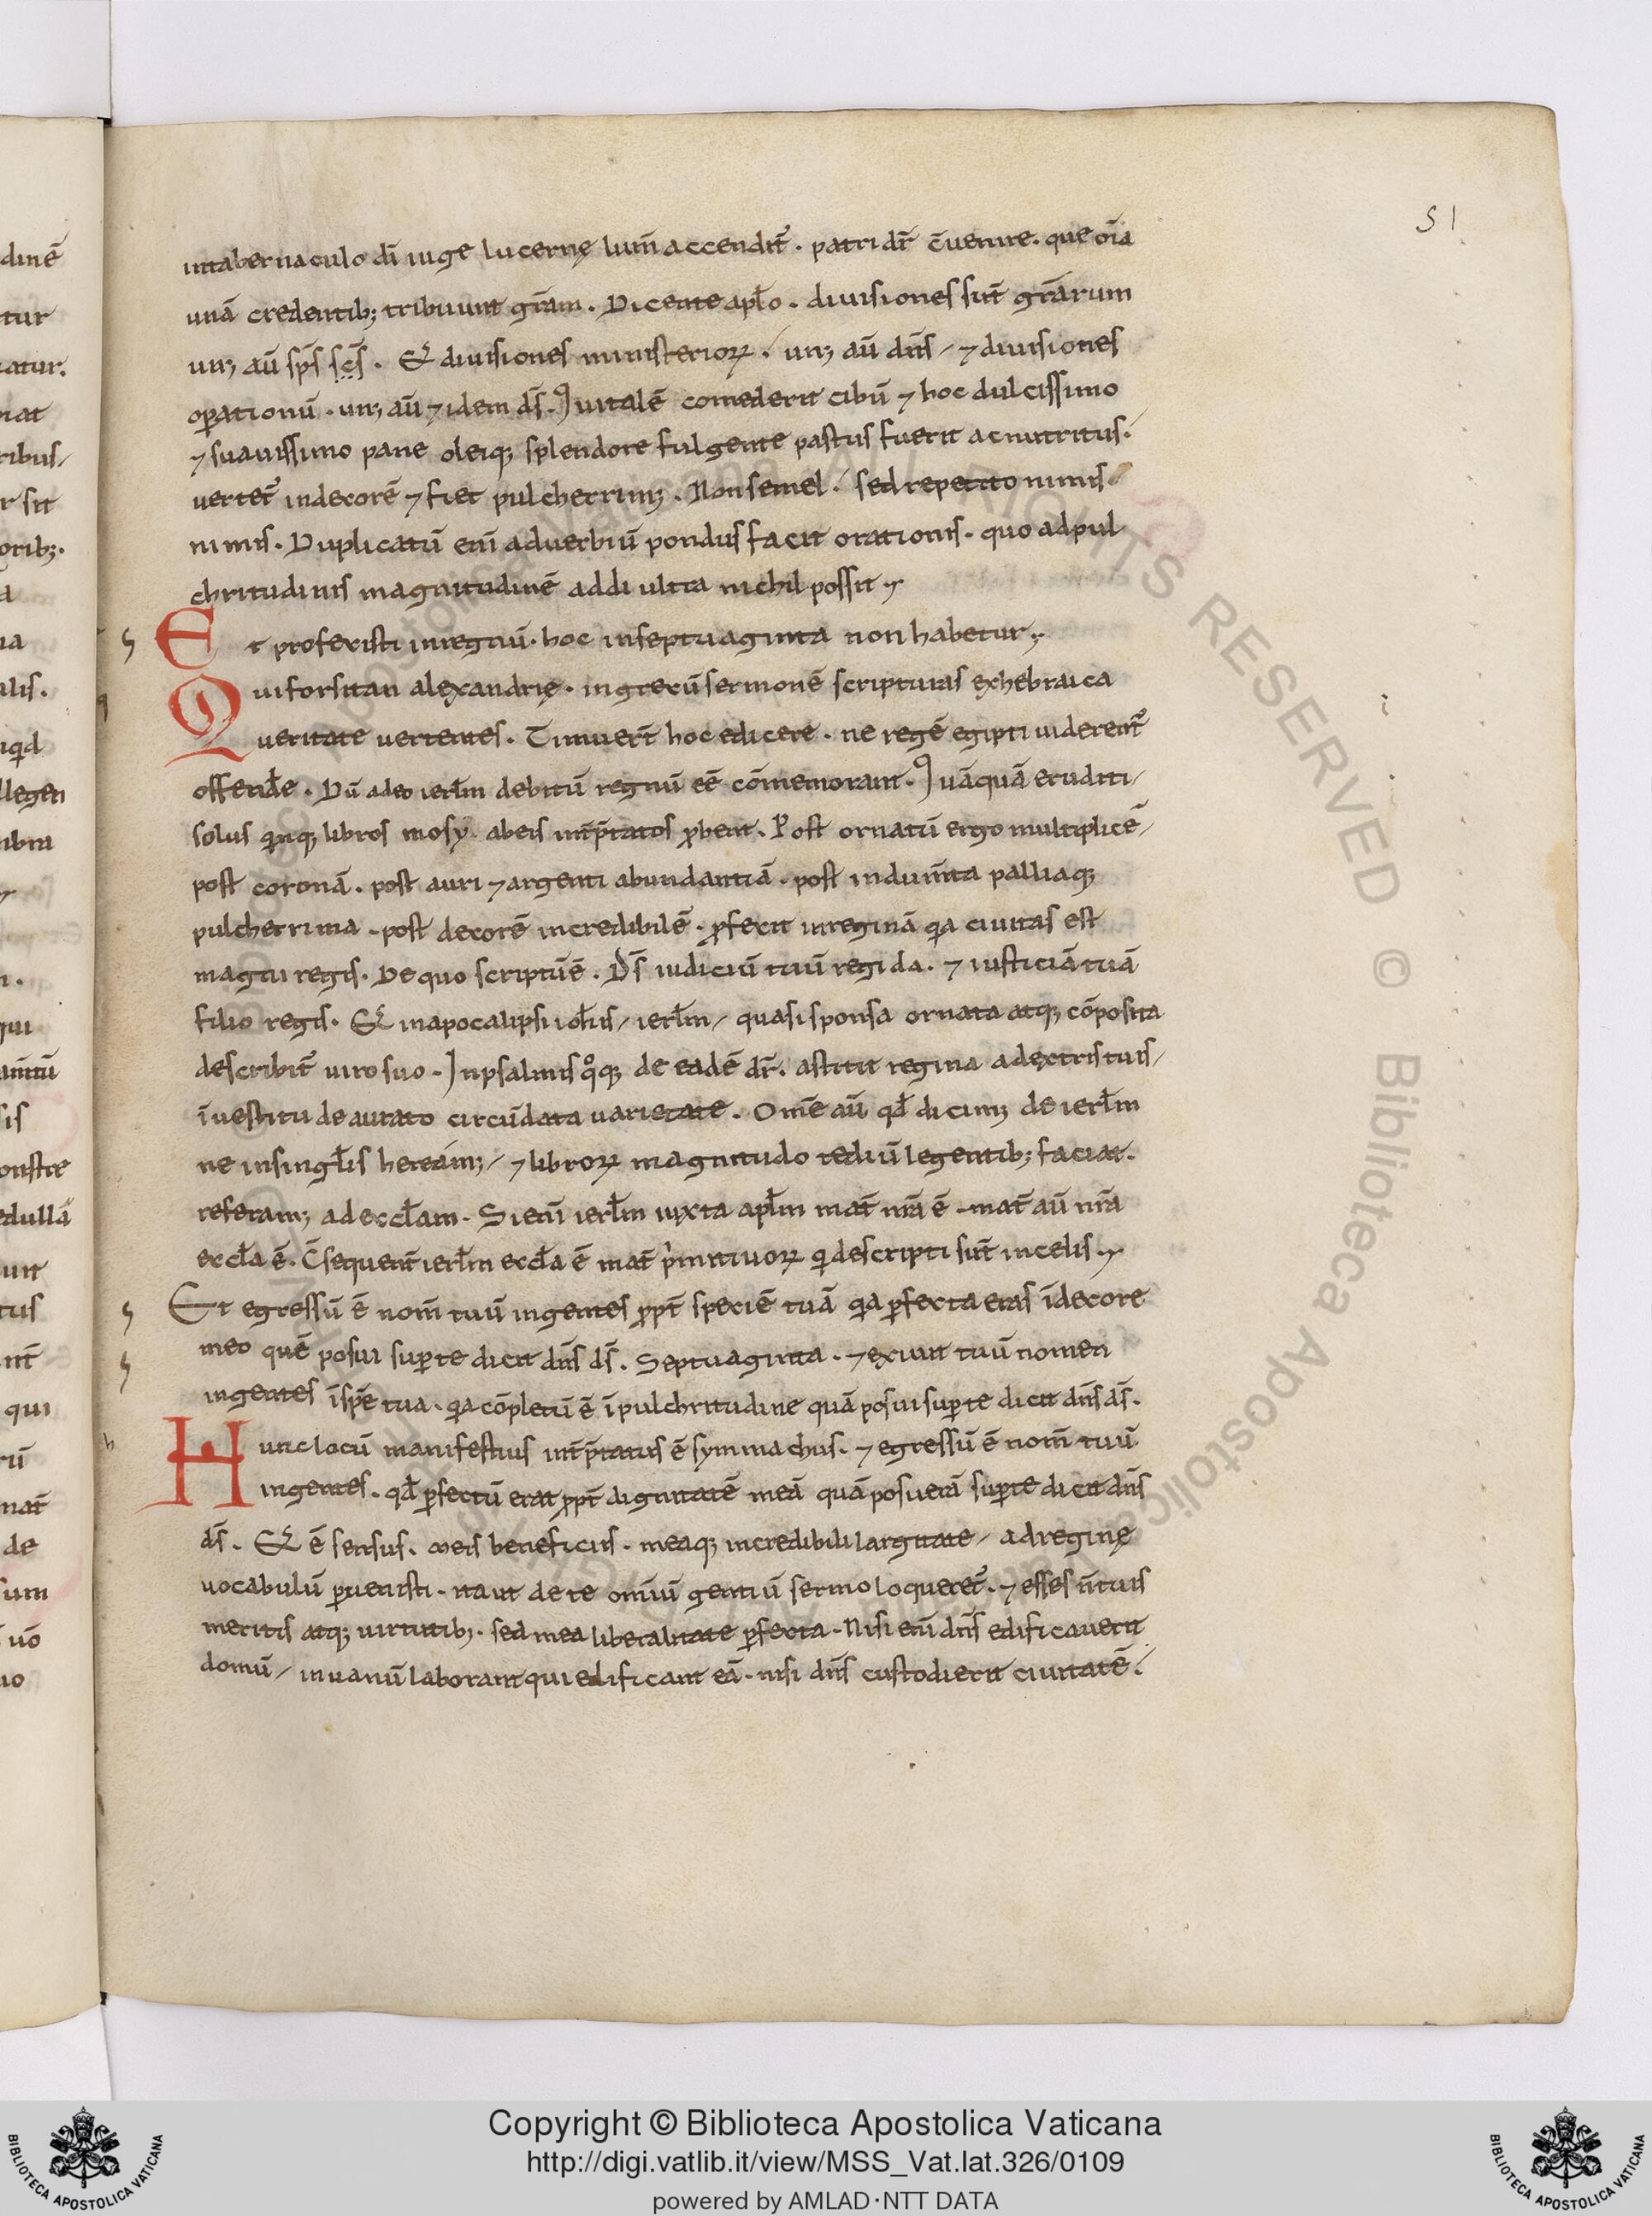 51
intabernaculo dī iuge lucernę lum̄ accendit᷑ . patri dr̄ c̄uenire . que om̄a
unā credentib; tribuunt gr̄am . Dicente apl̄o . diuisiones sūt gr̄arum
un; aū sp̄s sc̄s . Et diuisiones ministerioꝝ . un; aū dn̄s / ⁊ diuisiones
oꝑationū . un; aū ⁊ idem ds̄ . Qui talē comederit cibū ⁊ hoc dulcissimo
⁊ suauissimo pane oleiq; splendore fulgente pastus fuerit ac nutritus .
uertet᷑ indecorē ⁊ fiet pulcherrim; . Non semel / sed repetito nimis
nimis . Duplicatū eni aduerbiū pondus facit orationis . quo ad pul
chritudinis magnitudinē addi ultra nichil possit
Et profexisti in regnū . hoc in septuaginta non habetur
Qui forsitan alexandrię . in grecū sermonē scripturas ex hebraica
ueritate uertentes . Timuer̄t hoc edicere . ne regē egipti uiderent᷑
offend̄e . Dū adeo ierl̄m debitū regnū eē cōmemorant . Quāquā eruditi /
solus quinq; libros mosy ab eis int̄p̄tatos ꝓbent . Post ornatū ergo multiplicē /
post coronā . post auri ⁊ argenti abundantiā . post indum̄ta palliaq;
pulcherrima . post decorē incredibilē . ꝓfecit in reginā qa ciuitas est
magni regis . De quo scriptū ē . Ds̄ iudiciū tuū regi da . ⁊ iusticiā tuā
filio regis . Et in apocalipsi ioh̄is / ierl̄m / quasi sponsa ornata atq; cōposita
describit᷑ uiro suo . In psalmis qoq; de eadē dr̄ . astitit regina a dextris tuis /
ī uestitu deaurato circūdata uarietate . Omē aū qd̄ dicim; de ierl̄m
ne in singl̄is heream; / ⁊ libroꝝ magnitudo tediū legentib; faciat .
referam; ad eccl̄am . Si eni ierl̄m iuxta apl̄m mat̄ nr̄a ē . mat̄ aū nr̄a
eccl̄a ē . C̄sequent̄ ierl̄m eccl̄a ē mat̄ p̍mitiuoꝝ qi descripti sūt in celis
Et egressū ē nom̄ tuū in gentes ꝓpt̄ speciē tuā qa ꝑfecta eras ī decore
meo quē posui suꝑ te dicit dn̄s ds̄ . Septuaginta . ⁊ exiuit tuū nomen
in gentes ī spē tua . qa cōpletū ē ī pulchritudine quā posui suꝑ te dicit dn̄s ds̄ .
Hunc locū manifestius int̄p̄tatus ē symmachus . ⁊ egressū ē nom̄ tuū
in gentes . qd̄ ꝑfectū erat ꝓpt̄ dignitatē meā quā posuerā suꝑ te dicit dn̄s
ds̄ . Et ē sensus . meis beneficiis . meaq; incredibili largitate / ad reginę
uocabulū ꝑuenisti . ita ut de te omiū gentiū sermo loqueret᷑ . ⁊ esses n̄ tuis
meritis atq; uirtutib; . sed mea liberalitate ꝑfecta . Nisi eni dn̄s edificauerit
domū / in uanū laborant qui edificant eā . nisi dn̄s custodierit ciuitatē .
Copyright © Biblioteca Apostolica Vaticana
http://digi.vatlib.it/view/MSS_Vat.lat.326/0109
powered by AMLAD·NTT DATA